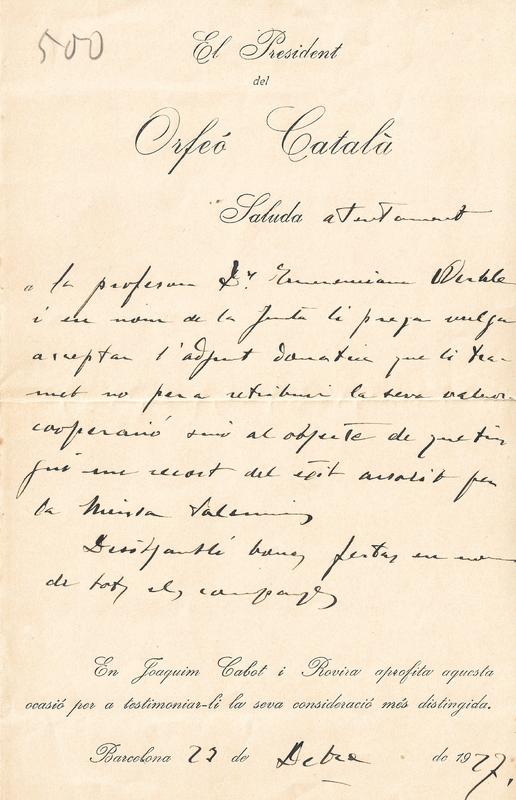 500
El President
del
Orfeó Català
Saluda atentament
a la profesora Dª Emerenciana Wehrle
i en nom de la Junta li prega vulga
acceptar l'adjunt donatiu que li tra-
met no per a retribuir la seva valuosa
cooperació sinó al objecte de que tin
gui un record del èxit assolit per
la Missa Solemnis
Desitjantli bones festas en nom
de tots els companys
En Joaquim Cabot i Rovira aprofita aquesta
ocasió per a testimoniar-li la seva consideració més distingida.
Barcelona 23 de Debre de 1927.